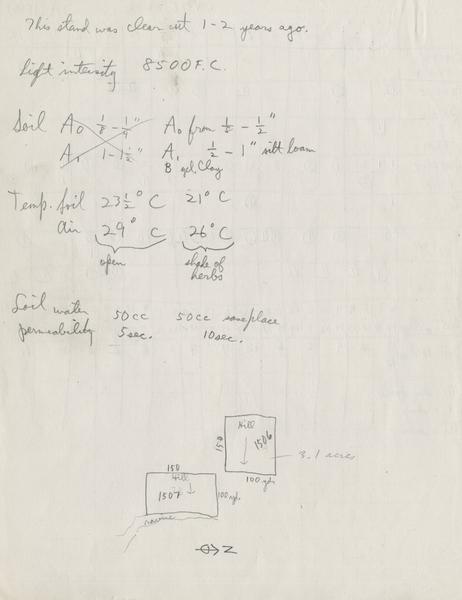 This stand was clear cut 1-2 years ago.
Light intensity 8500 F.C.
Soil A0 1/8 - 1/4" A0 from 1/8 - 1/2"
A1 1 - 1 1/2" A1 1/2 - 1" silt loam
B yel. Clay
Temp. soil 23 1/2° C 21° C
air 29° C 26° C
open shade of
herbs
Soil water 50cc 50cc same place
permeability 5 sec. 10 sec.
Hill
150 1506
3.1 acres
100 yds
150
Hill
1507 100 yds.
ravine
N